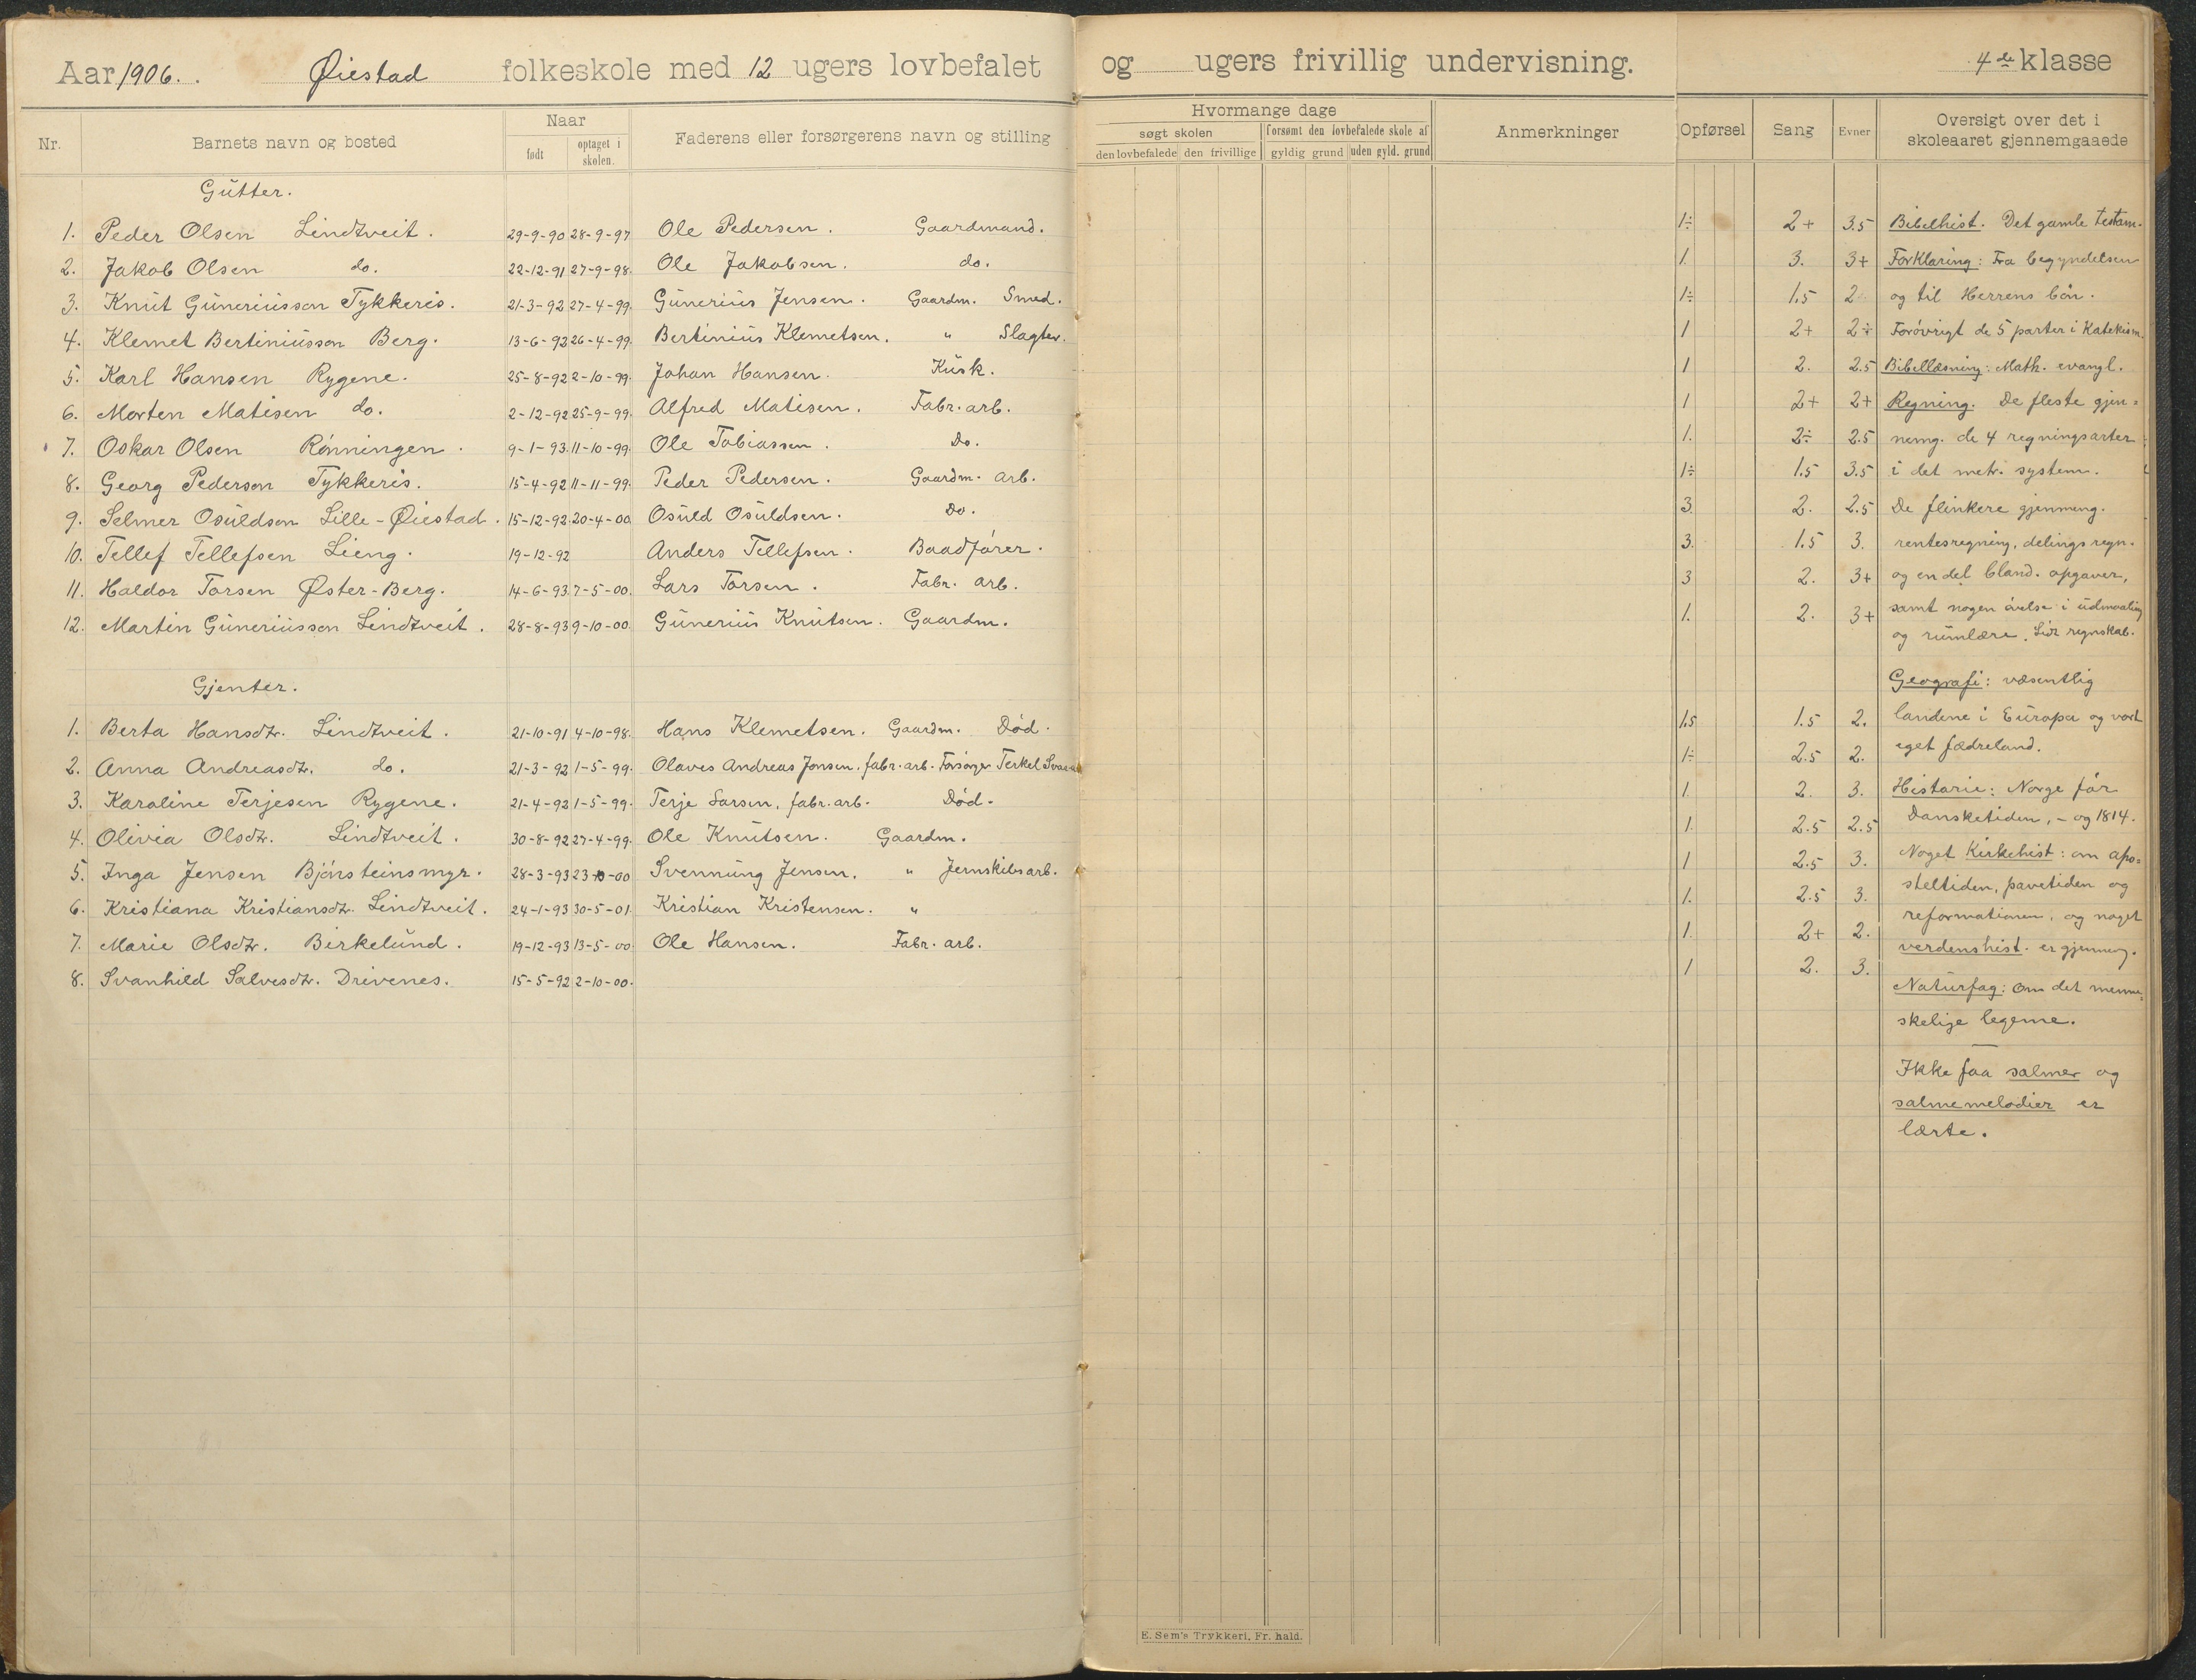 Aar 1906. Øiestad folkeskole med 12 ugers lovbefalet og ugers frivillig undervisning. 4de klasse
Nr. Barnets navn og bosted Naar født optaget i skolen. Faderens eller forsørgerens navn og stilling
Hvormange dage
søgt skolen forsømt den lovbefalede skole af
den lovbefalede den frivillige gyldig grund uden gyld. grund
Anmerkninger Opførsel Sang Evner Oversigt over det i skoleaaret gjennemgaaede
Gutter.
1. Peder Olsen Lindtveit. 29-9-90 28-9-97 Ole Pedersen. Gaardmand. 1÷ 2+ 3.5
2. Jakob Olsen do. 22-12-91 27-9-98. Ole Jakobsen. do. 1. 3. 3+
3. Knut Guneriusson Tykkeris. 21-3-92 27-4-99. Gunerius Jensen. Gaardm. Smed. 1÷ 1.5 2
4. Klemet Bertiniusson Berg. 13-6-92 26-4-99. Bertinius Klemetsen. " Slagter. 1 2+ 2÷
5. Karl Hansen Rygene. 25-8-92 2-10-99. Johan Hansen. Kusk. 1 2. 2.5
6. Morten Matisen do. 2-12-92 25-9-99. Alfred Matisen. Fabr. arb. 1 2+ 2+
7. Oskar Olsen Rønningen. 9-1-93. 11-10-99. Ole Tobiassen. Do. 1. 2÷ 2.5
8. Georg Pederson Tykkeris. 15-4-92 11-11-99. Peder Pedersen. Gaardm. arb. 1÷ 1.5 3.5
9. Selmer Osuldson Lille-Øiestad. 15-12-92. 20-4-00. Osuld Osuldsen. Do. 3. 2. 2.5
10. Tellef Tellefsen Lieng. 19-12-92 Anders Tellefsen. Baadfører. 3. 1.5 3.
11. Haldor Torsen Øster-Berg. 14-6-93. 7-5-00. Lars Torsen. Fabr. arb. 3 2. 3+
12. Martin Guneriusson Lindtveit. 28-8-93 9-10-00. Gunerius Knutsen. Gaardm. 1. 2. 3+
Gjenter.
1. Berta Hansdtr. Lindtveit. 21-10-91 4-10-98. Hans Klemetsen. Gaardm. Død. 1.5 1.5 2.
2. Anna Andreasdtr. do. 21-3-92 1-5-99. Olaves Andreas Jonsen. fabr. arb. Forsørger Terkel 1÷ 2.5 2.
3. Karoline Terjesen Rygene. 21-4-92 1-5-99. Terje Larsen, fabr. arb. Død. 1 2. 3.
4. Olivia Olsdtr. Lindtveit. 30-8-92 27-4-99. Ole Knutsen. Gaardm. 1. 2.5 2.5
5. Inga Jensen Bjønsteinsmyr. 28-3-93 23-10-00 Svennung Jensen. " Jernskibsarb. 1 2.5 3.
6. Kristiana Kristiansdtr. Lindtveit. 24-1-93 30-5-01. Kristian Kristensen. " 1. 2.5 3.
7. Marie Olsdtr. Birkelund. 19-12-93 13-5-00 Ole Hansen. Fabr. arb. 1. 2+ 2.
8. Svanhild Salvesdtr. Drivenes. 15-5-92 2-10-00. 1 2. 3.
Bibelhist. Det gamle testam.
Forklaring: Fra begyndelsen
og til Herrens bøn.
Forøvrigt de 5 parter i Katekism.
Bibellæsning: Math. evangl.
Regning. De fleste gjen=
nemg. de 4 regningsarter
i det metr. system.
De flinkere gjennemg.
rentesregning, delingsregn.
og en del bland. opgaver,
samt nogen øvelse i udmaaling
og rumlære. Lidt regnskab.
Geografi: væsentlig
landene i Europa og vort
eget fædreland.
Historie: Norge før
Dansketiden, - og 1814.
Noget Kirkehist: om apo=
steltiden, pavetiden og
reformationen, og noget
verdenshist. er gjennemg.
Naturfag: Om det menne=
skelige legeme.
Ikke faa salmer og
salmemelodier er
lærte.
E. Sem's Trykkeri, Fr. hald.